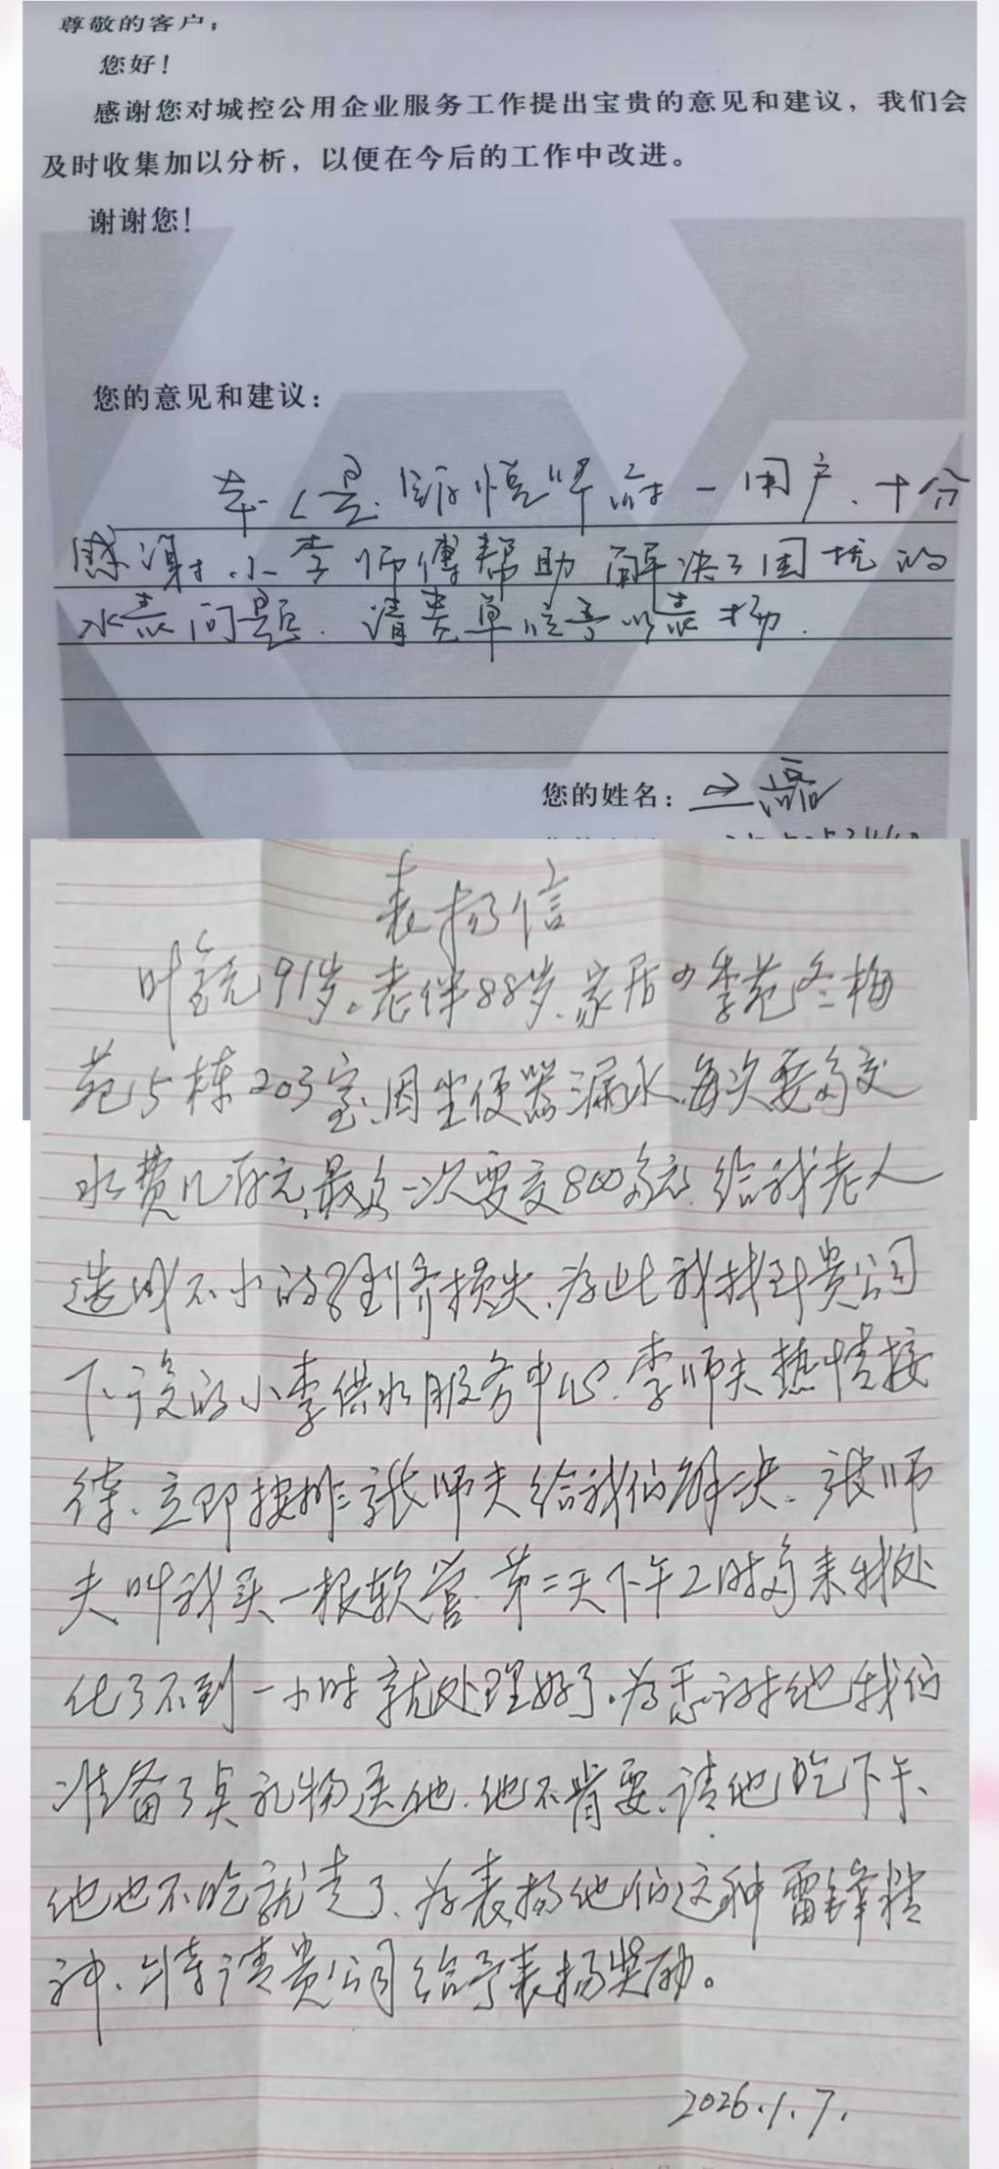 尊敬的客户：
您好！
感谢您对城控公用企业服务工作提出宝贵的意见和建议，我们会
及时收集加以分析，以便在今后的工作中改进。
谢谢您！
您的意见和建议：
本人是 华府一用户、十分
感谢小李师傅帮助解决了困扰的
水表问题. 请贵单位予以表扬.
您的姓名：
表扬信
叶 91岁。老伴88岁、家居四季苑冬梅
苑15栋203室、因坐便器漏水、每次要多交
水费几百元，最多一次要交800多元. 给我老人
造成不小的经济损失、为此我找到贵公司
下设的小李供水服务中心. 李师夫热情接
待、立即按排张师夫给我们解决. 张师
夫叫我买一根软管. 第二天下午2时多来我处
化了不到一小时就处理好了. 为感谢他我们
准备了点礼物送他. 他不肯要、请他吃下午、
他也不吃就走了、为表扬他们这种雷锋精
神、特请贵公司给予表扬奖励。
2026.1.7.